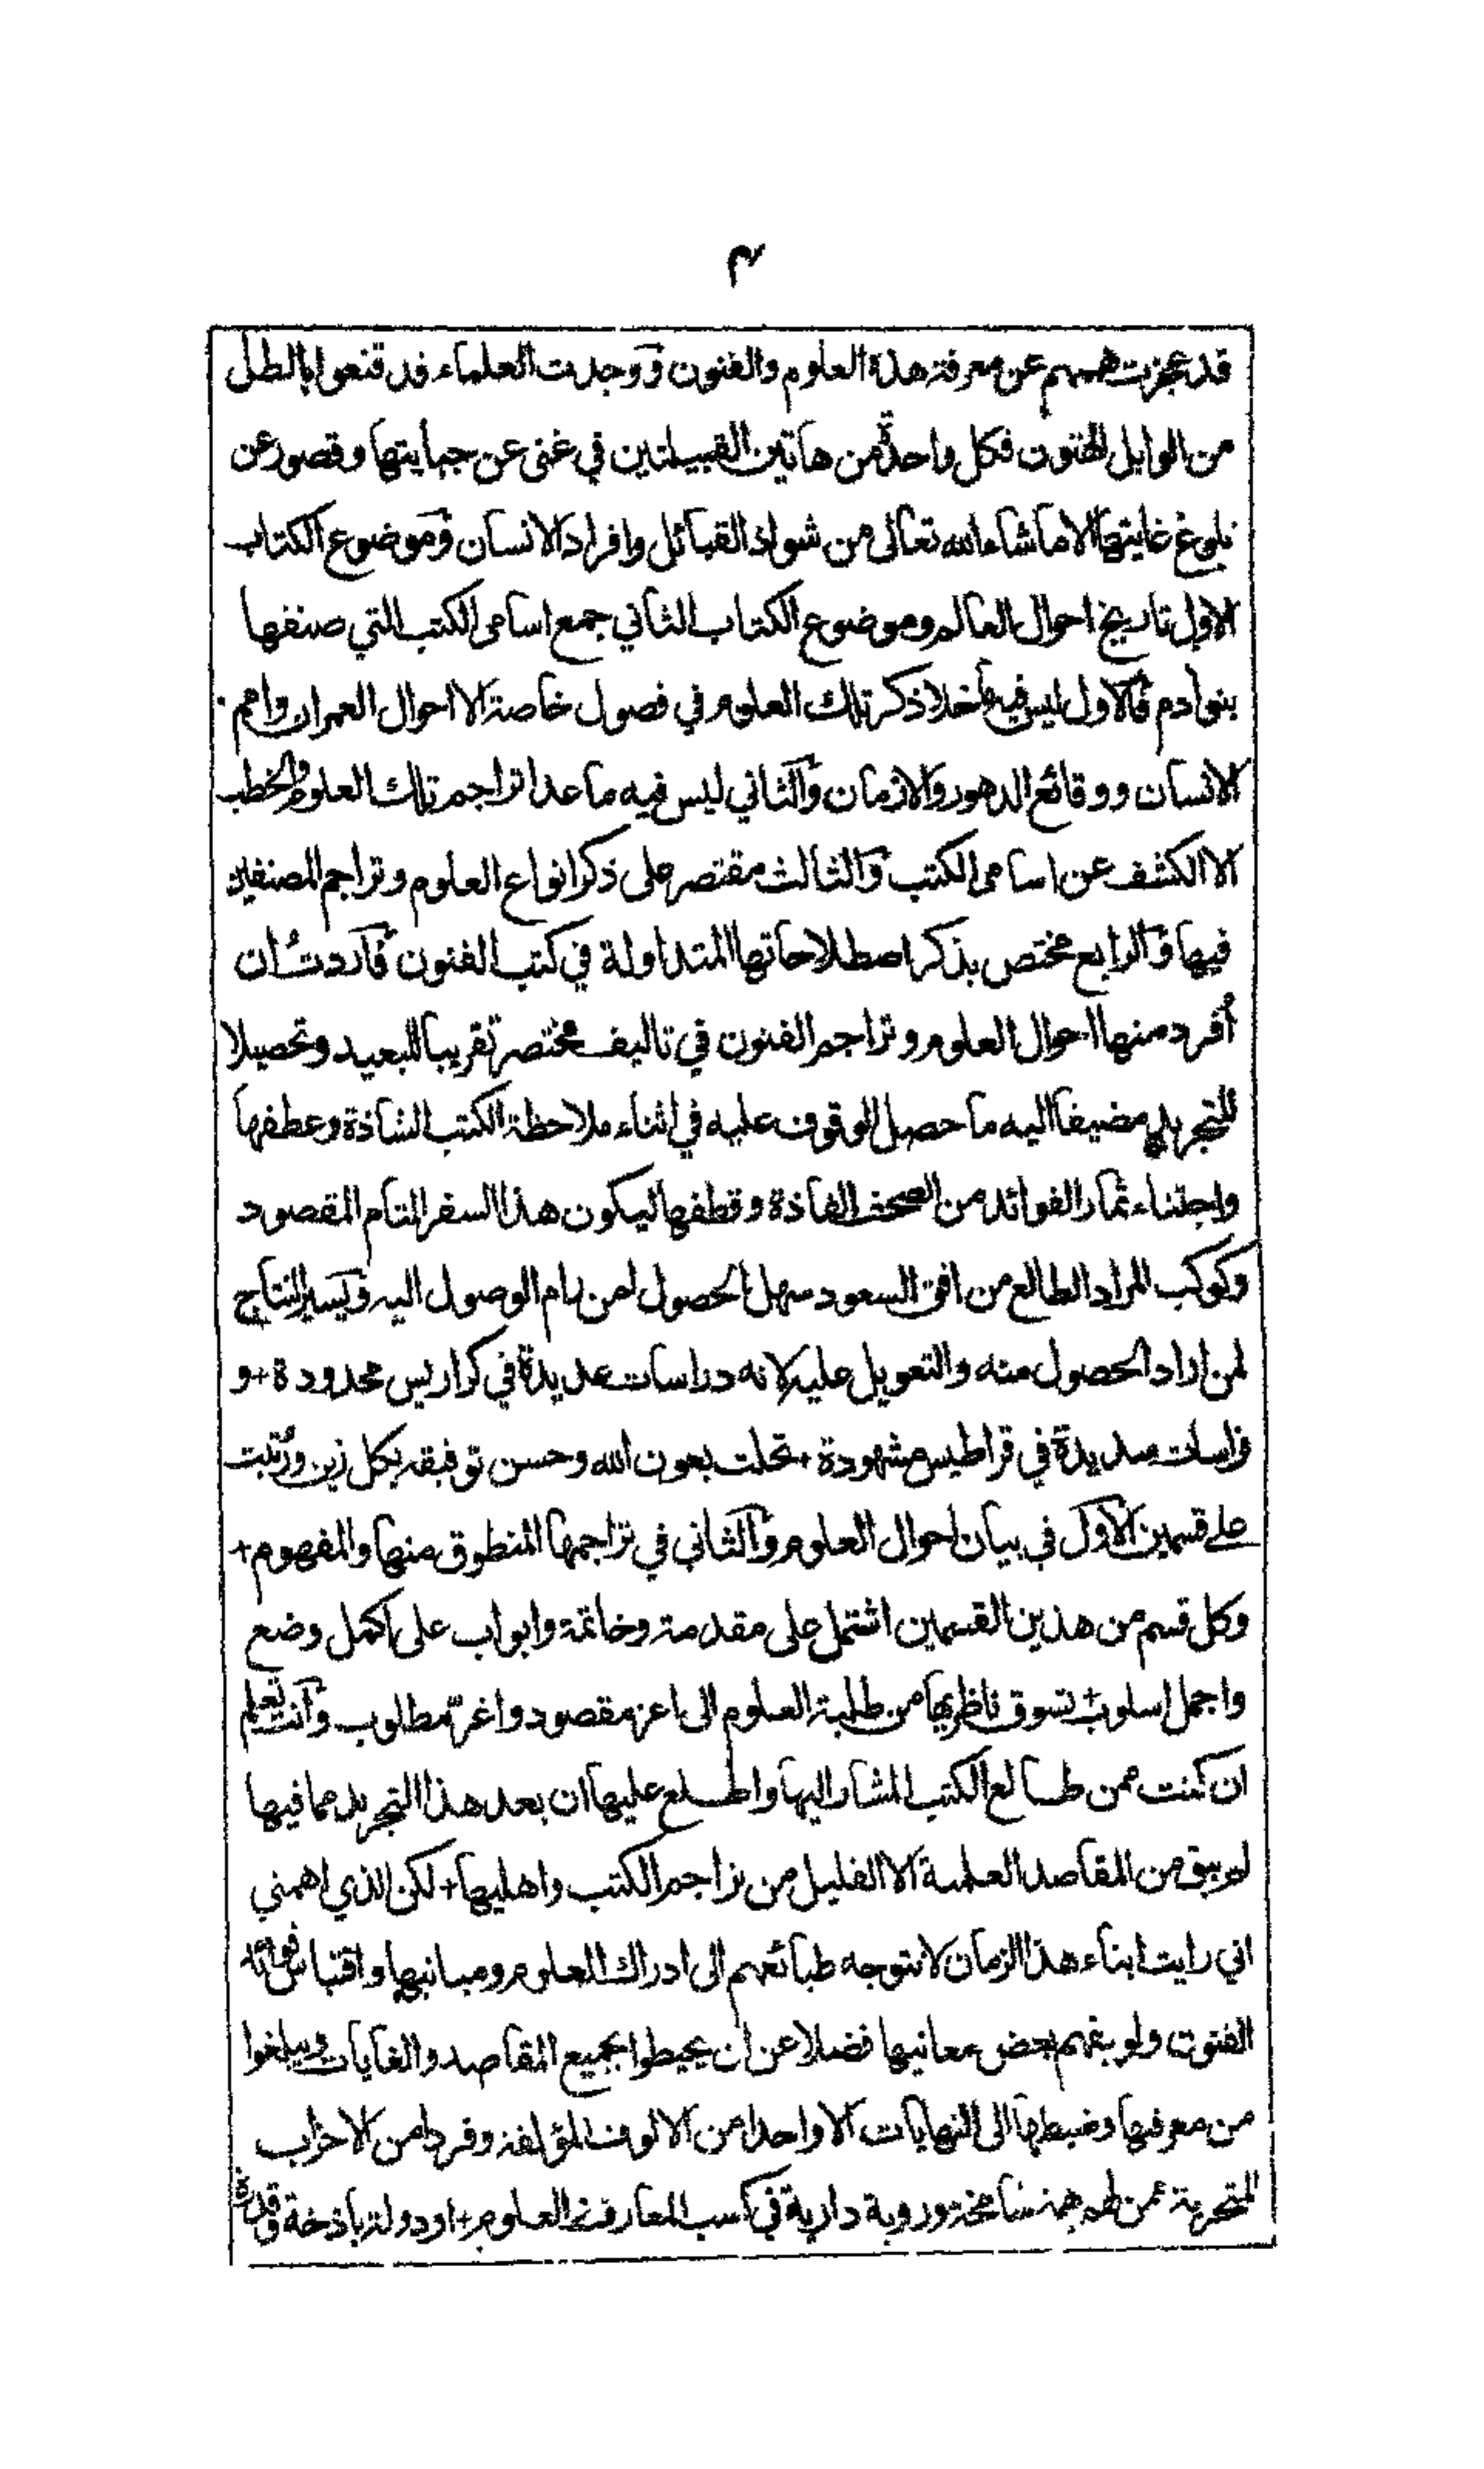 ٣
قد عجزت هممهم عن معرفة هذه العلوم والفنون ووجدت العلماء قد قنعوا بالطل
من الوابل الهتون فكل واحدة من هاتين القبيلتين في غنى عن جبايتها وقصور عن
بلوغ غايتها الا ماشاء الله تعالى من شواذ القبائل وافراد الانسان وموضوع الكتاب
الاول تاريخ احوال العالم وموضوع الكتاب الثاني جمع اسامى الكتب التي صنفها
بنو ادم فالاول ليس فيه ماخلا ذكر تلك العلوم في فصول خاصة الا احوال العمران وامم
الانسان ووقائع الدهور والازمان والثاني ليس فيه ماعدا تراجم تلك العلوم والخطب
الا الكشف عن اسامى الكتب والثالث مقتصر على ذكر انواع العلوم وتراجم المصنفين
فيها والرابع مختص بذكر اصطلاحاتها المتداولة في كتب الفنون فاردتُ ان
أُفرد منها احوال العلوم وتراجم الفنون في تاليف مختصر تقريبا للبعيد وتحصيلا
للتجريد مضيفا اليه ما حصل الوقوف عليه في اثناء ملاحظة الكتب الشاذة وعطفها
واجتناء ثمار الفوائد من الصحف الفاذة وقطفها ليكون هذا السفر التام المقصود
وكوكب المراد الطالع من افق السعود سهل الحصول لمن رام الوصول اليه ويسير النتاج
لمن اراد الحصول منه والتعويل عليه لانه دراسات عديدة في كراريس محدودة + و
فراسات سديدة في قراطيس مشهودة + تحلت بعون الله وحسن توفيقه بكل زين ورُتبت
على قسمين الاول في بيان احوال العلوم والثاني في تراجمها المنطوق منها والمفهوم +
وكل قسم من هذين القسمين اشتمل على مقدمة وخاتمة وابواب على اكمل وضع
واجمل اسلوب + تسوق ناظريها من طلبة العلوم الى اعز مقصود واغرّ مطلوب وانت تعلم
ان كنت ممن طالع الكتب المشار اليها واطلع عليها ان بعد هذا التجريد مما فيها
لم يبق من المقاصد العلمية الا القليل من تراجم الكتب واهليها + لكن الذي اهمني
اني رايت ابناء هذا الزمان لا تتوجه طبائعهم الى ادراك العلوم ومبانيها واقتباس
الفنون ولو بفهم بعض معانيها فضلا عن ان يحيطوا بجميع المقاصد والغايات ويبلغوا
من معرفتها وضبطها الى النهايات الا واحدا من الالوف المؤلفة وفردا من الاحزاب
المتحزبة ممن له همة شامخة وروية دارية في كسب المعارف والعلوم + او دولة باذخة وقدرة